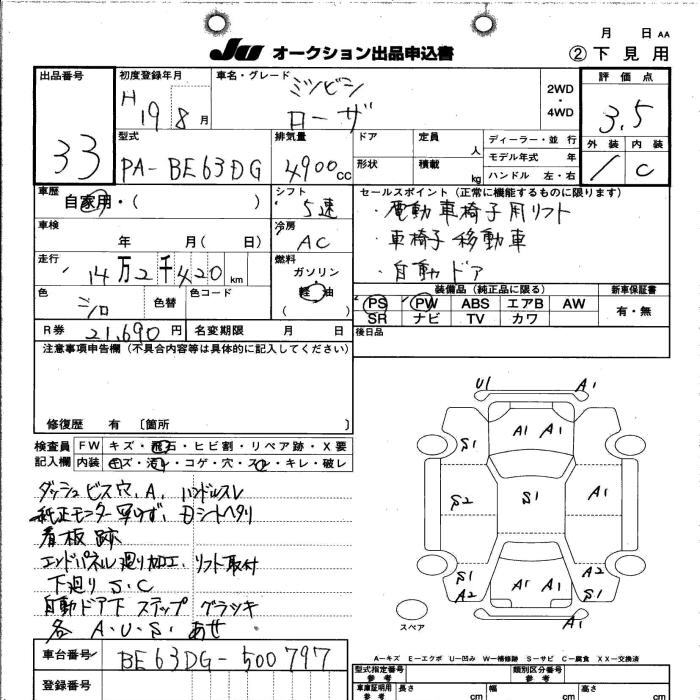 月 日 AA
JU オークション出品申込書 ②下見用
出品番号 初度登録年月 車名・グレード 2WD・4WD 評価点
33
H19 8月
ミツビシ
ローザ
3.5
外装 内装
/ C
型式 排気量 ドア 定員 ディーラー・並行
PA-BE63DG 4900cc 人
形状 積載 kg モデル年式 年
ハンドル 左・右
車歴 自家用・( )
シフト 5速
セールスポイント(正常に機能するものに限ります)
・電動車椅子用リフト
・車椅子移動車
・自動ドア
車検 年 月( 日)
冷房 AC
走行 14万2千420km
燃料 ガソリン 軽油 ( )
色 色替 色コード
シロ
装備品(純正品に限る) 新車保証書
PS PW ABS エアB AW 有・無
SR ナビ TV カワ
R券 21,690円 名変期限 月 日
後日品
注意事項申告欄(不具合内容等は具体的に記入してください)
修復歴 有 〔箇所 〕
検査員記入欄
FW キズ・飛石・ヒビ割・リペア跡・X要
内装 キズ・汚レ・コゲ・穴・スレ・キレ・破レ
ダッシュビス穴、A、ハンドルスレ
純正モニター写けず、Dシートヘタリ
看板跡
エンドパネル廻り加工、リフト取付
下廻りS.C
自動ドア下ステップグラツキ
各A.U.S.あせ
U1 A1
S1 A1 A1 S1
S2 S1 A1
S1 A2
A2 A1 A1 S1
A1
スペア
A-キズ E-エクボ U-凹み W-補修跡 S-サビ C-腐食 XX-交換済
車台番号 BE63DG-500797
登録番号
型式指定番号 参考 類別区分番号 参考
車庫証明用参考 長さ cm 幅 cm 高さ cm